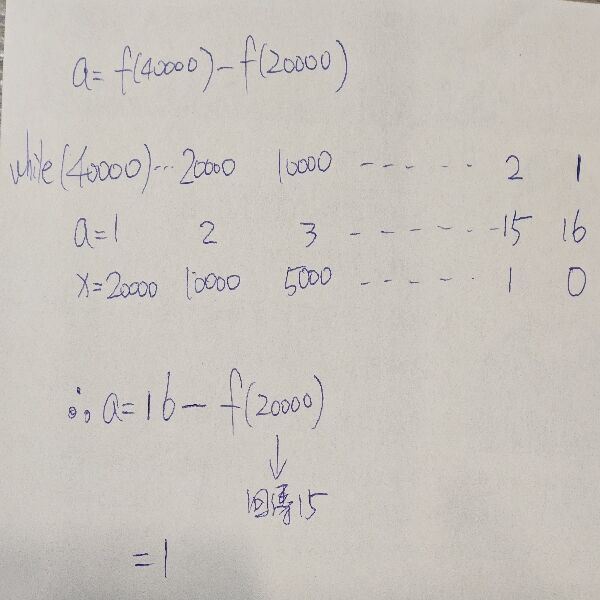 a= f(40000)-f(20000)
while(40000)--- 20000 10000 ------- 2 1
a=1 2 3 ------- 15 16
x=20000 10000 5000 ------ 1 0
∴ a=16- f(20000)
↓
回傳15
=1